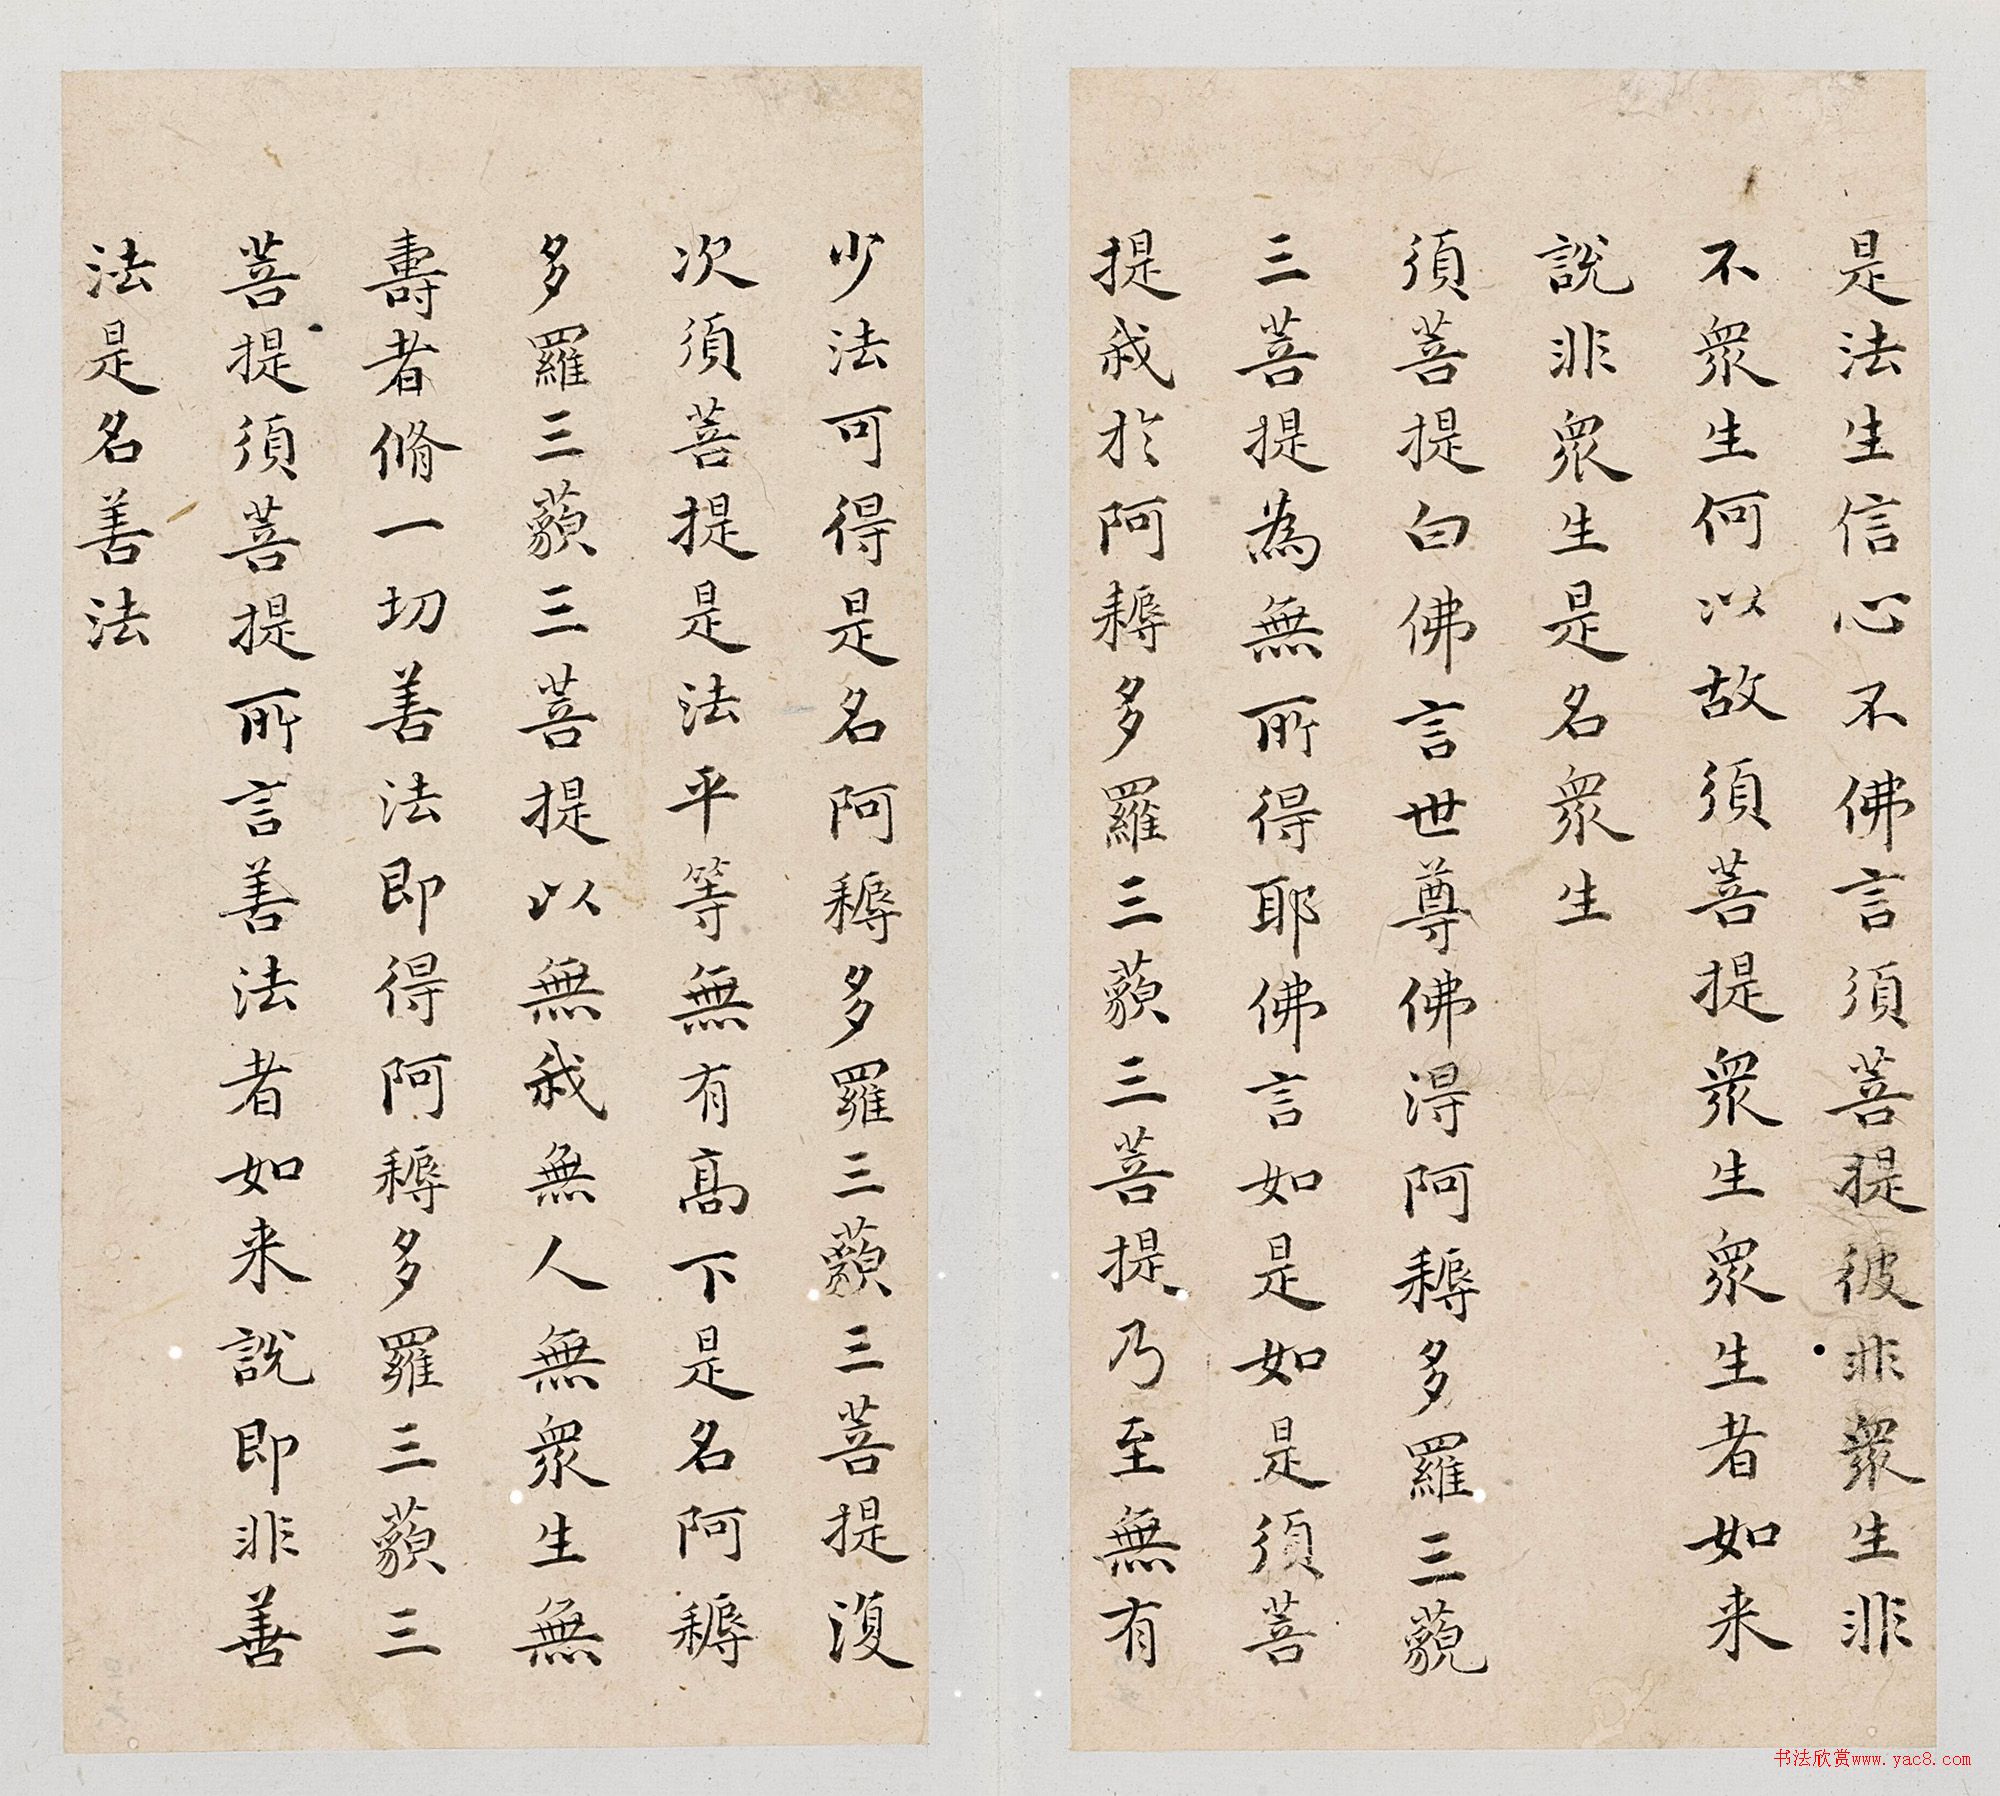 是法生信心不佛言須菩提彼非衆生非
不衆生何以故須菩提衆生衆生者如来
說非衆生是名衆生
須菩提白佛言世尊佛得阿耨多羅三藐
三菩提為無所得耶佛言如是如是須菩
提我於阿耨多羅三藐三菩提乃至無有
少法可得是名阿耨多羅三藐三菩提復
次須菩提是法平等無有高下是名阿耨
多羅三藐三菩提以無我無人無衆生無
壽者脩一切善法即得阿耨多羅三藐三
菩提須菩提所言善法者如来說即非善
法是名善法
书法欣赏www.yac8.com